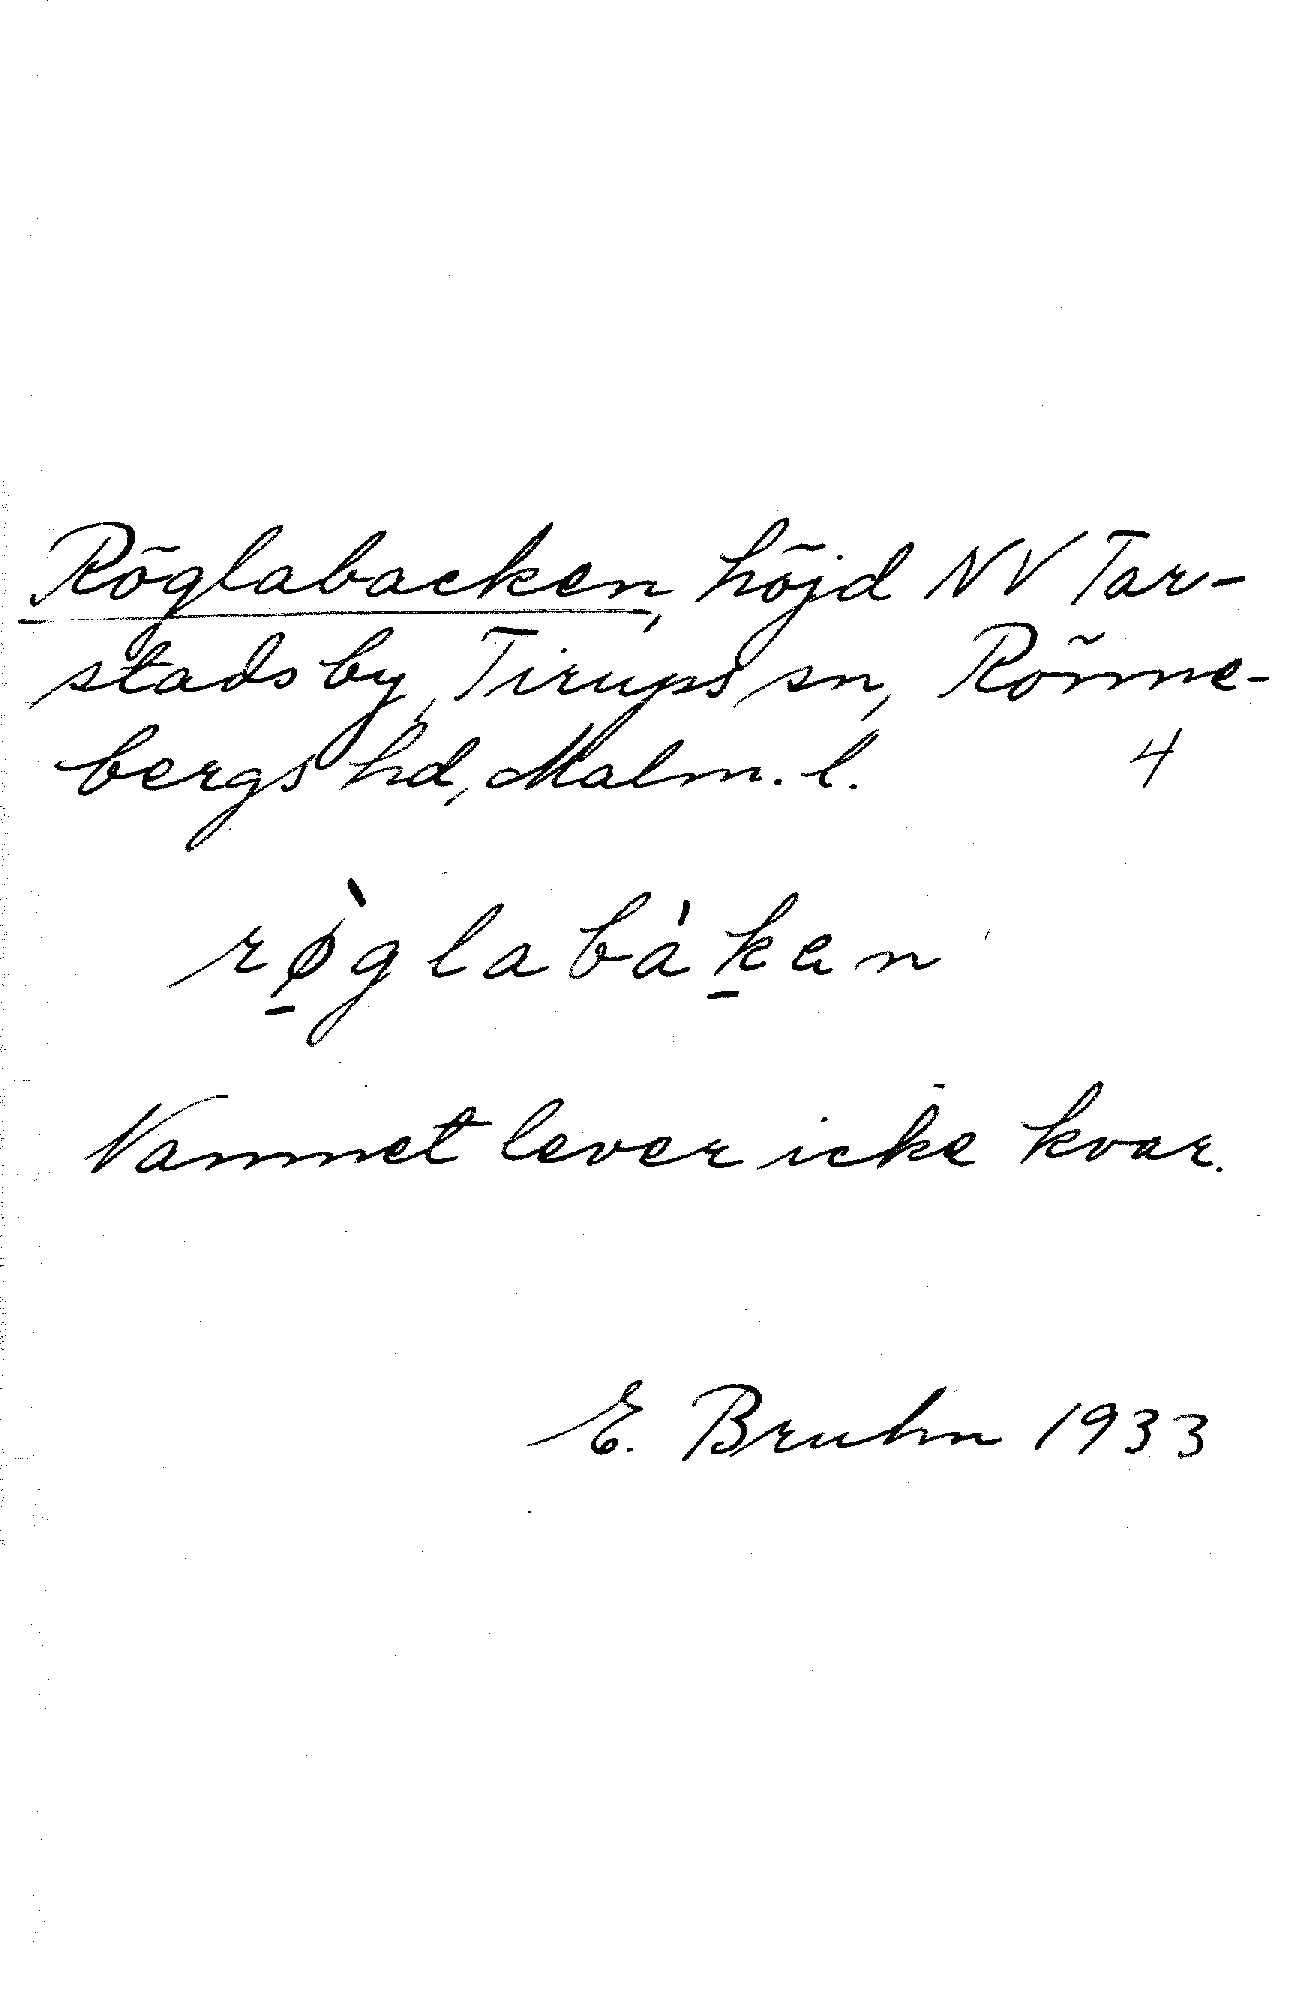 Röglabacken, höjd NV Tar-
stads by, Tirups sn, Rönne-
bergs hd, Malm. l. 4
rø̀glabàken
Namnet lever icke kvar.
E. Bruhn 1933